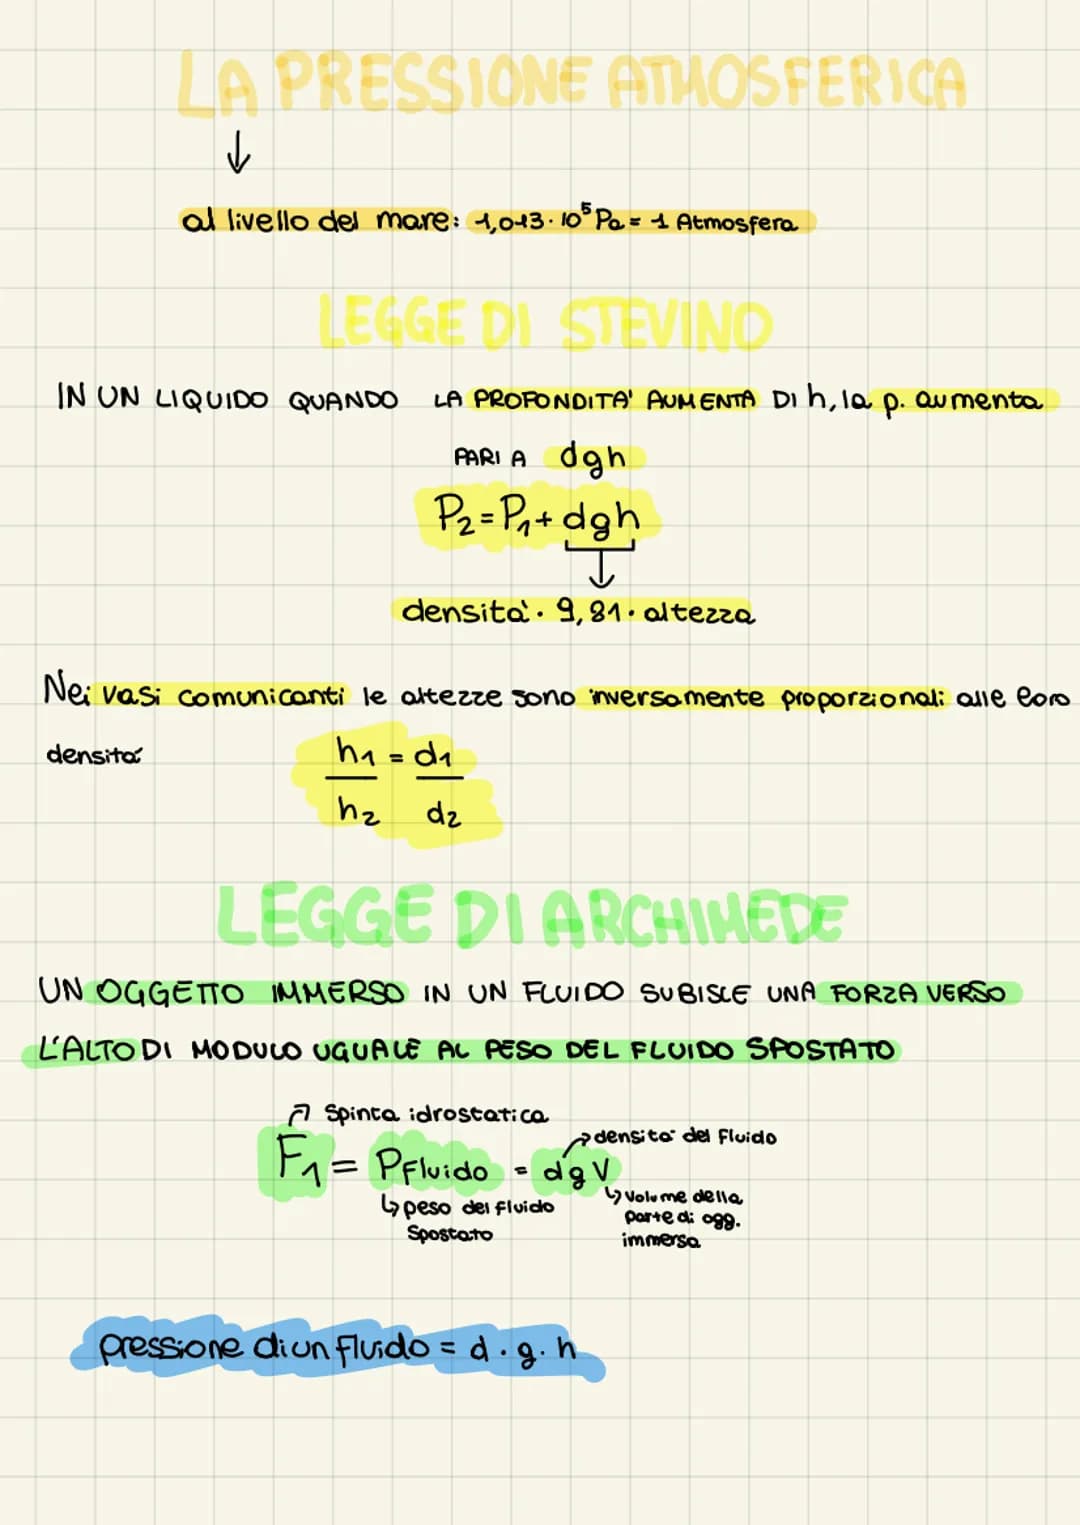 LA PRESSIONE ATMOSFERICA
↓
al livello del mare: 1,013·10⁵ Pa = 1 Atmosfera
LEGGE DI STEVINO
IN UN LIQUIDO QUANDO LA PROFONDITA' AUMENTA DI h, la p. aumenta
PARI A dgh
P₂ = P₁ + dgh
↓
densita'· 9,81 · altezza
Nei vasi comunicanti le altezze sono inversamente proporzionali alle loro
densita'
h₁ = d₁
h₂ d₂
LEGGE DI ARCHIMEDE
UN OGGETTO IMMERSO IN UN FLUIDO SUBISCE UNA FORZA VERSO
L'ALTO DI MODULO UGUALE AL PESO DEL FLUIDO SPOSTATO
Spinta idrostatica
densita' del Fluido
F₁ = PFluido = dgV
↳ peso del fluido
Spostato
↳ Volume della
parte di ogg.
immersa
pressione di un fluido = d · g · h